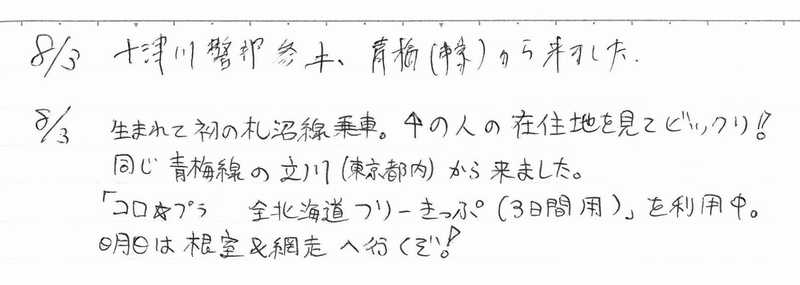 8/3 十津川警部参上、青梅(東京)から来ました.
8/3 生まれて初の札沼線乗車。↑の人の在住地を見てビックリ!?
同じ青梅線の立川(東京都内)から来ました。
「コロ☆プラ 全北海道フリーきっぷ(3日間用)」を利用中。
明日は根室&網走へ行くぞ!